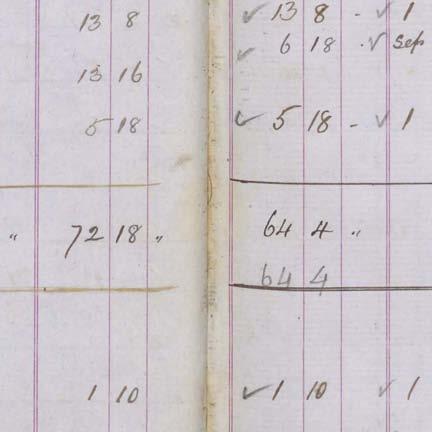 13 8
13 16
5 18
" 72 18 "
1 10
✓ 13 8 - ✓ 1
✓ 6 18 - ✓ Sep
✓ 5 18 - ✓ 1
64 4 "
64 4
✓ 1 10 ✓ 1